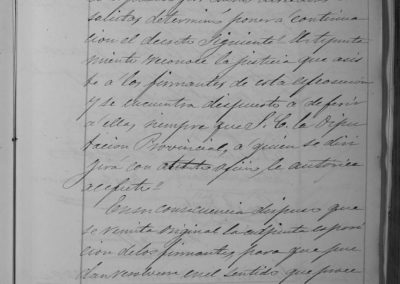 solicitos determino poner a continua
cion el decreto siguiente? Este Ayunta
miento reconoce la justicia que asis
te a los firmantes de esta esposicion
y se encuentra dispuesto a deferir
a ellas siempre que S. E. la Dipu
tacion Provincial, a quien se diri
girá con atento oficio, le autorice
al efecto?
En su consecuencia dispuso que
se remita original la esposi
cion de los firmantes para que pue
dan resolver en el sentido que proce